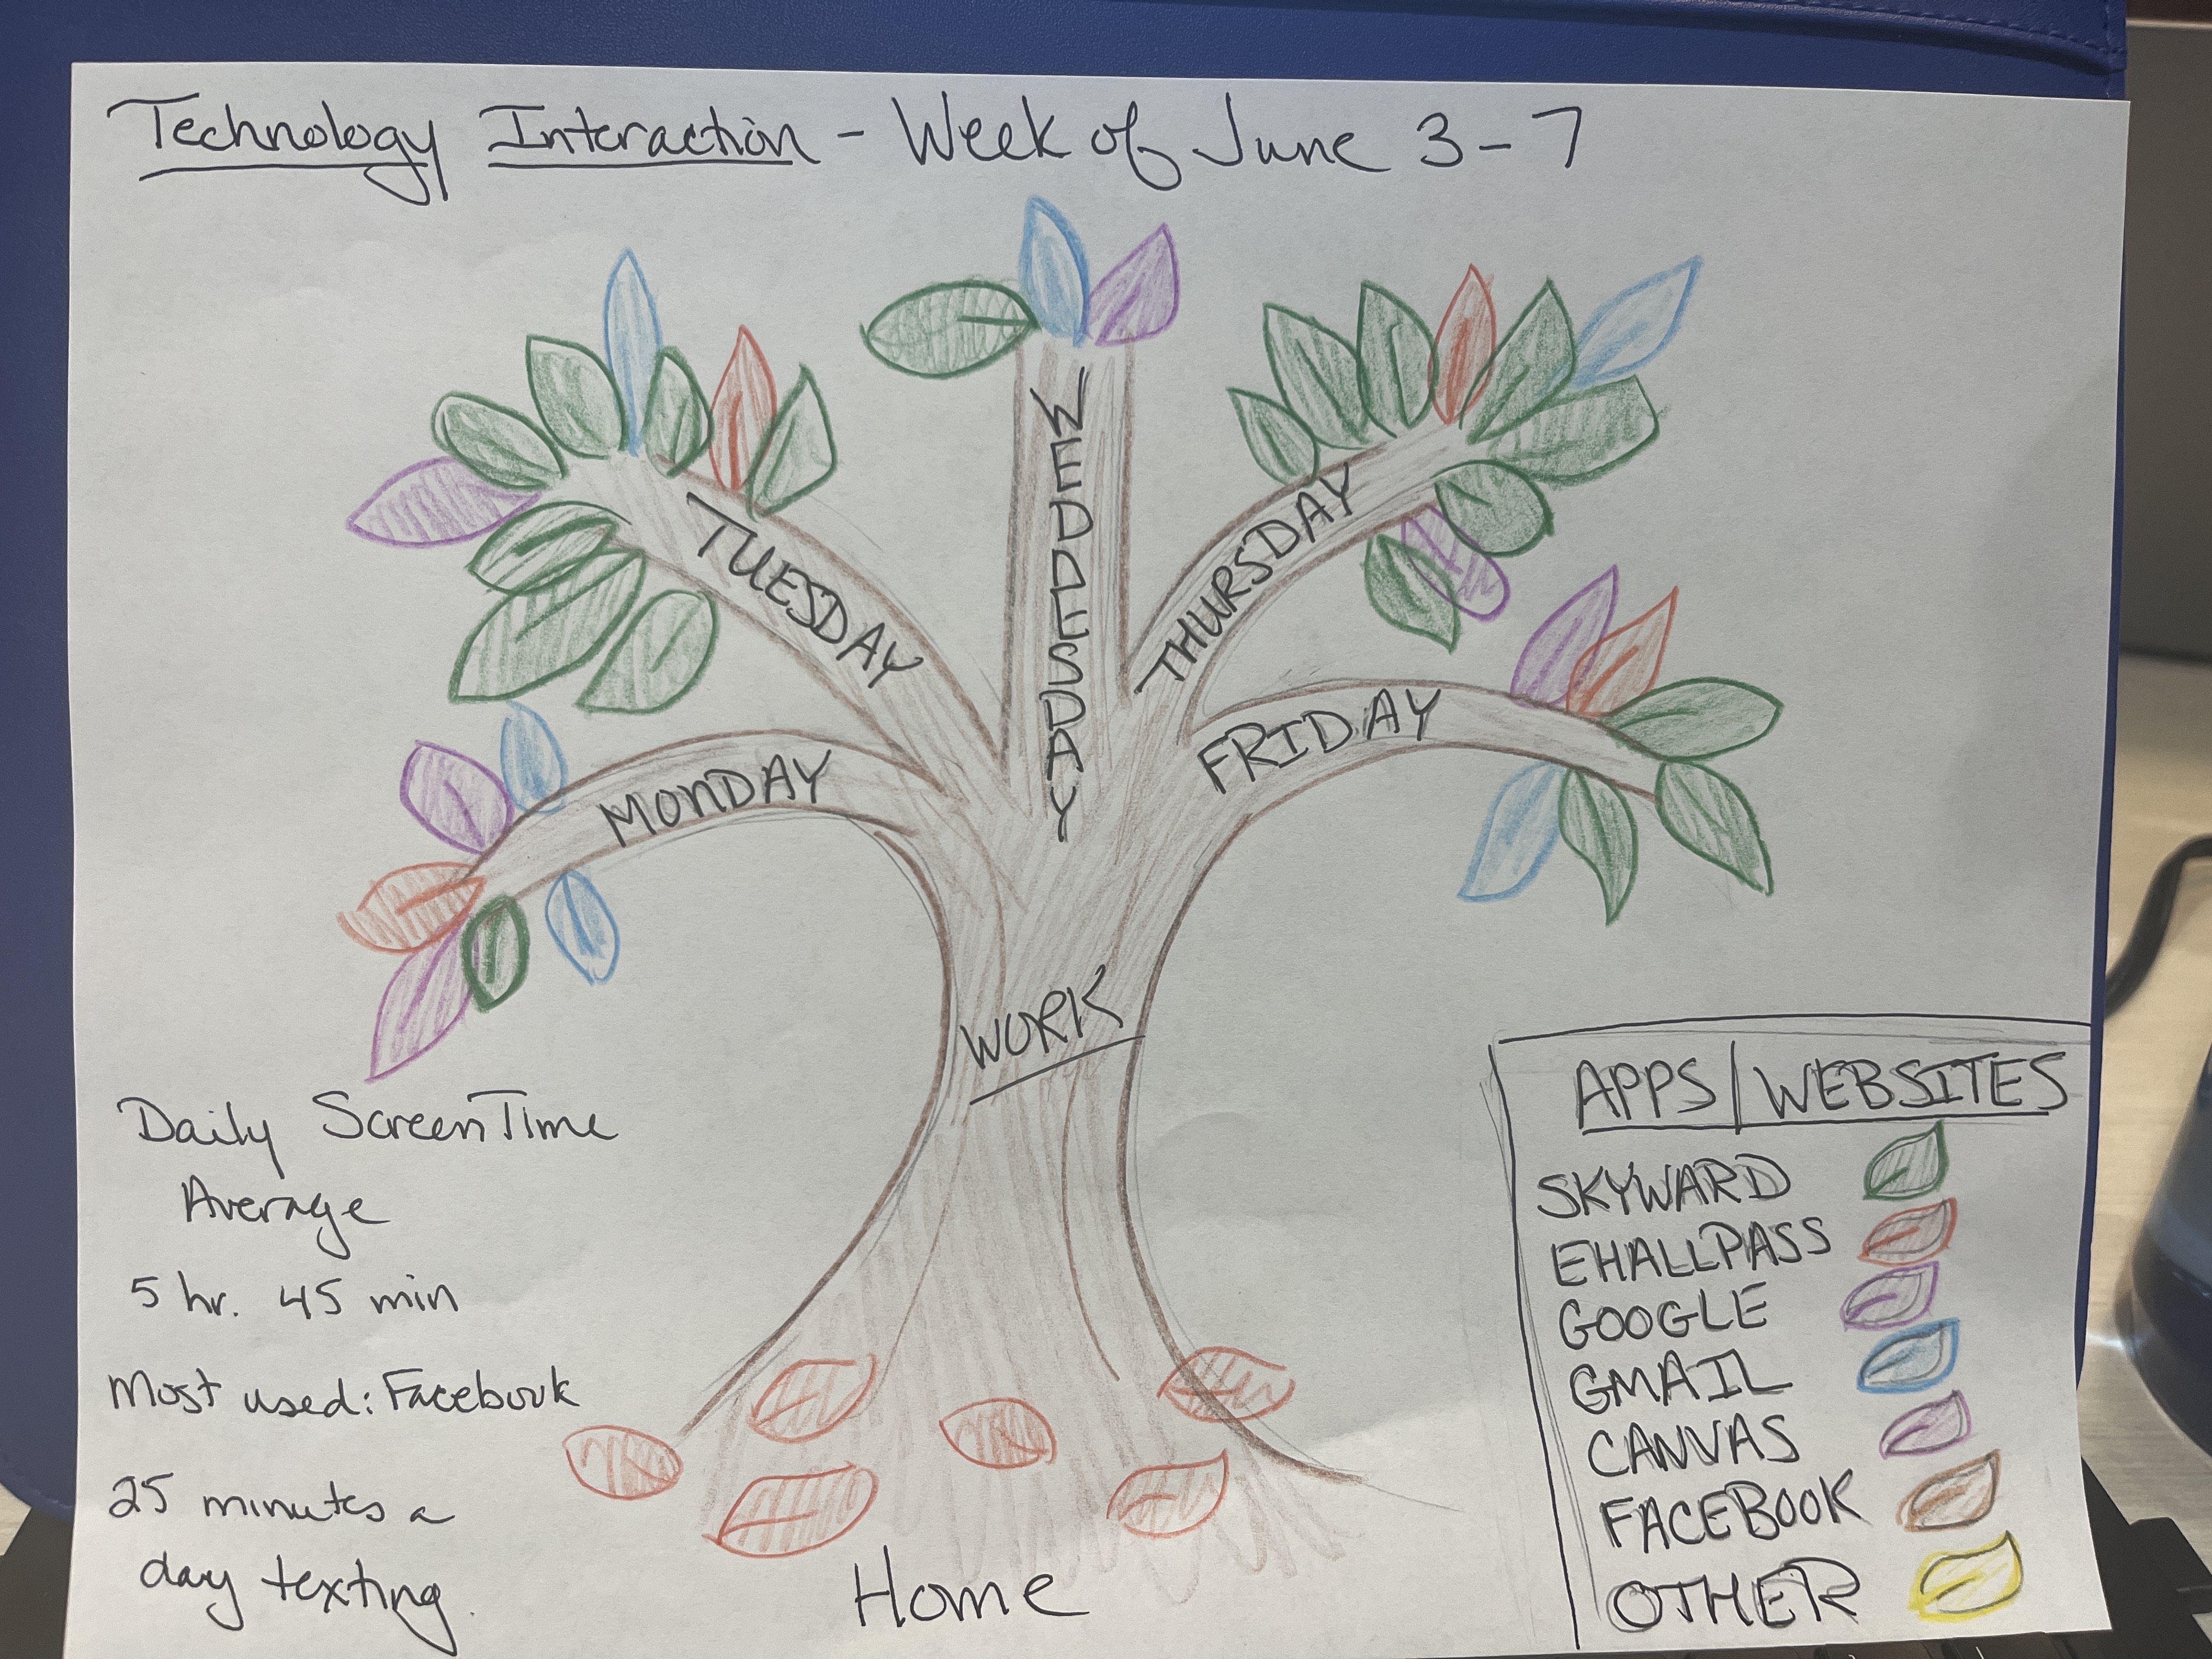 Technology Interaction - Week of June 3-7
MONDAY
TUESDAY
WEDNESDAY
THURSDAY
FRIDAY
WORK
Daily Screen Time
Average
5 hr. 45 min
Most used: Facebook
25 minutes a
day texting.
Home
APPS/WEBSITES
SKYWARD
EHALLPASS
GOOGLE
GMAIL
CANVAS
FACEBOOK
OTHER